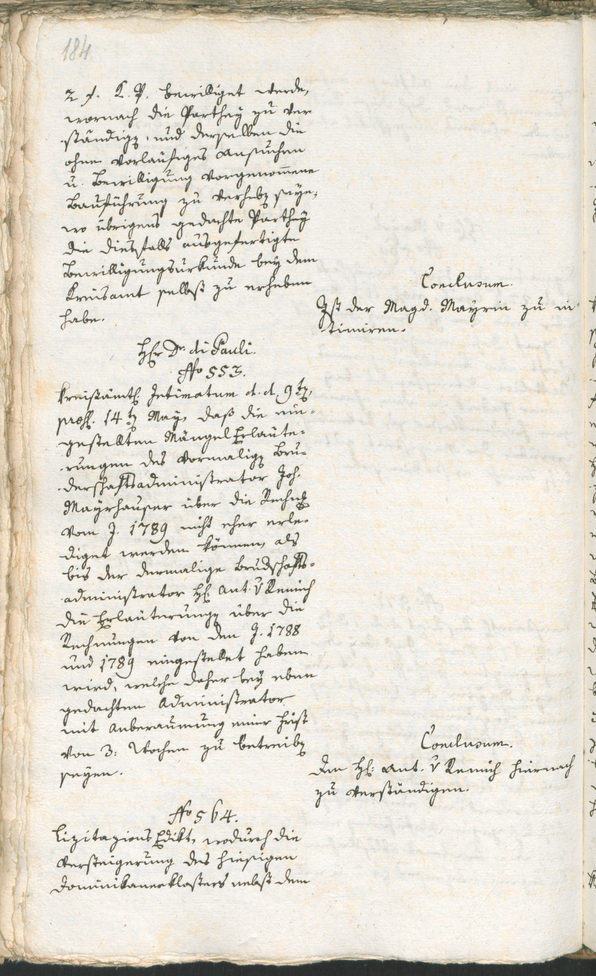 184
2 f. K. P. bewilliget werde,
wornach die Parthey zu ver
ständig, und derselben die
ohne vorläufiges Ansuchen
u. Bewilligung vorgenommene
Bauführung zu verheb seye,
wo übrigens gedachte Parthey
die diesfalls ausgefertigte
Bewilligungsurkunde bey dem
Kreisamt selbst zu erheben
habe.
Conclusum.
Ist der Magd. Mayrin zu in
timiren.
H. Dr. di Pauli.
No 553.
Kreisämtl. Intimatum d. d. 9t,
præs. 14t May, daß die ein-
gestellten Mängel Erläute-
rungen des vormalig Bru-
derschaftsadministrator Joh.
Mayrhauser über die Rechnug
vom J. 1789 nicht eher erle-
diget werden können, als
bis der dermalige Brudschafts-
administrator H. Ant. v Remich
die Erläuterung über die
Rechnungen von den J. 1788
und 1789 eingestellet haben
wird, welche daher bey eben
gedachten Administrator
mit Anberaumung einer Frist
von 3: Wochen zu betreib
seyen.
Conclusum.
Den H: Ant. v Remich hiernach
zu verständigen.
No 564.
Lizitazions Edikt, wodurch die
Versteigerung des hiesigen
Dominikanerklosters nebst dem